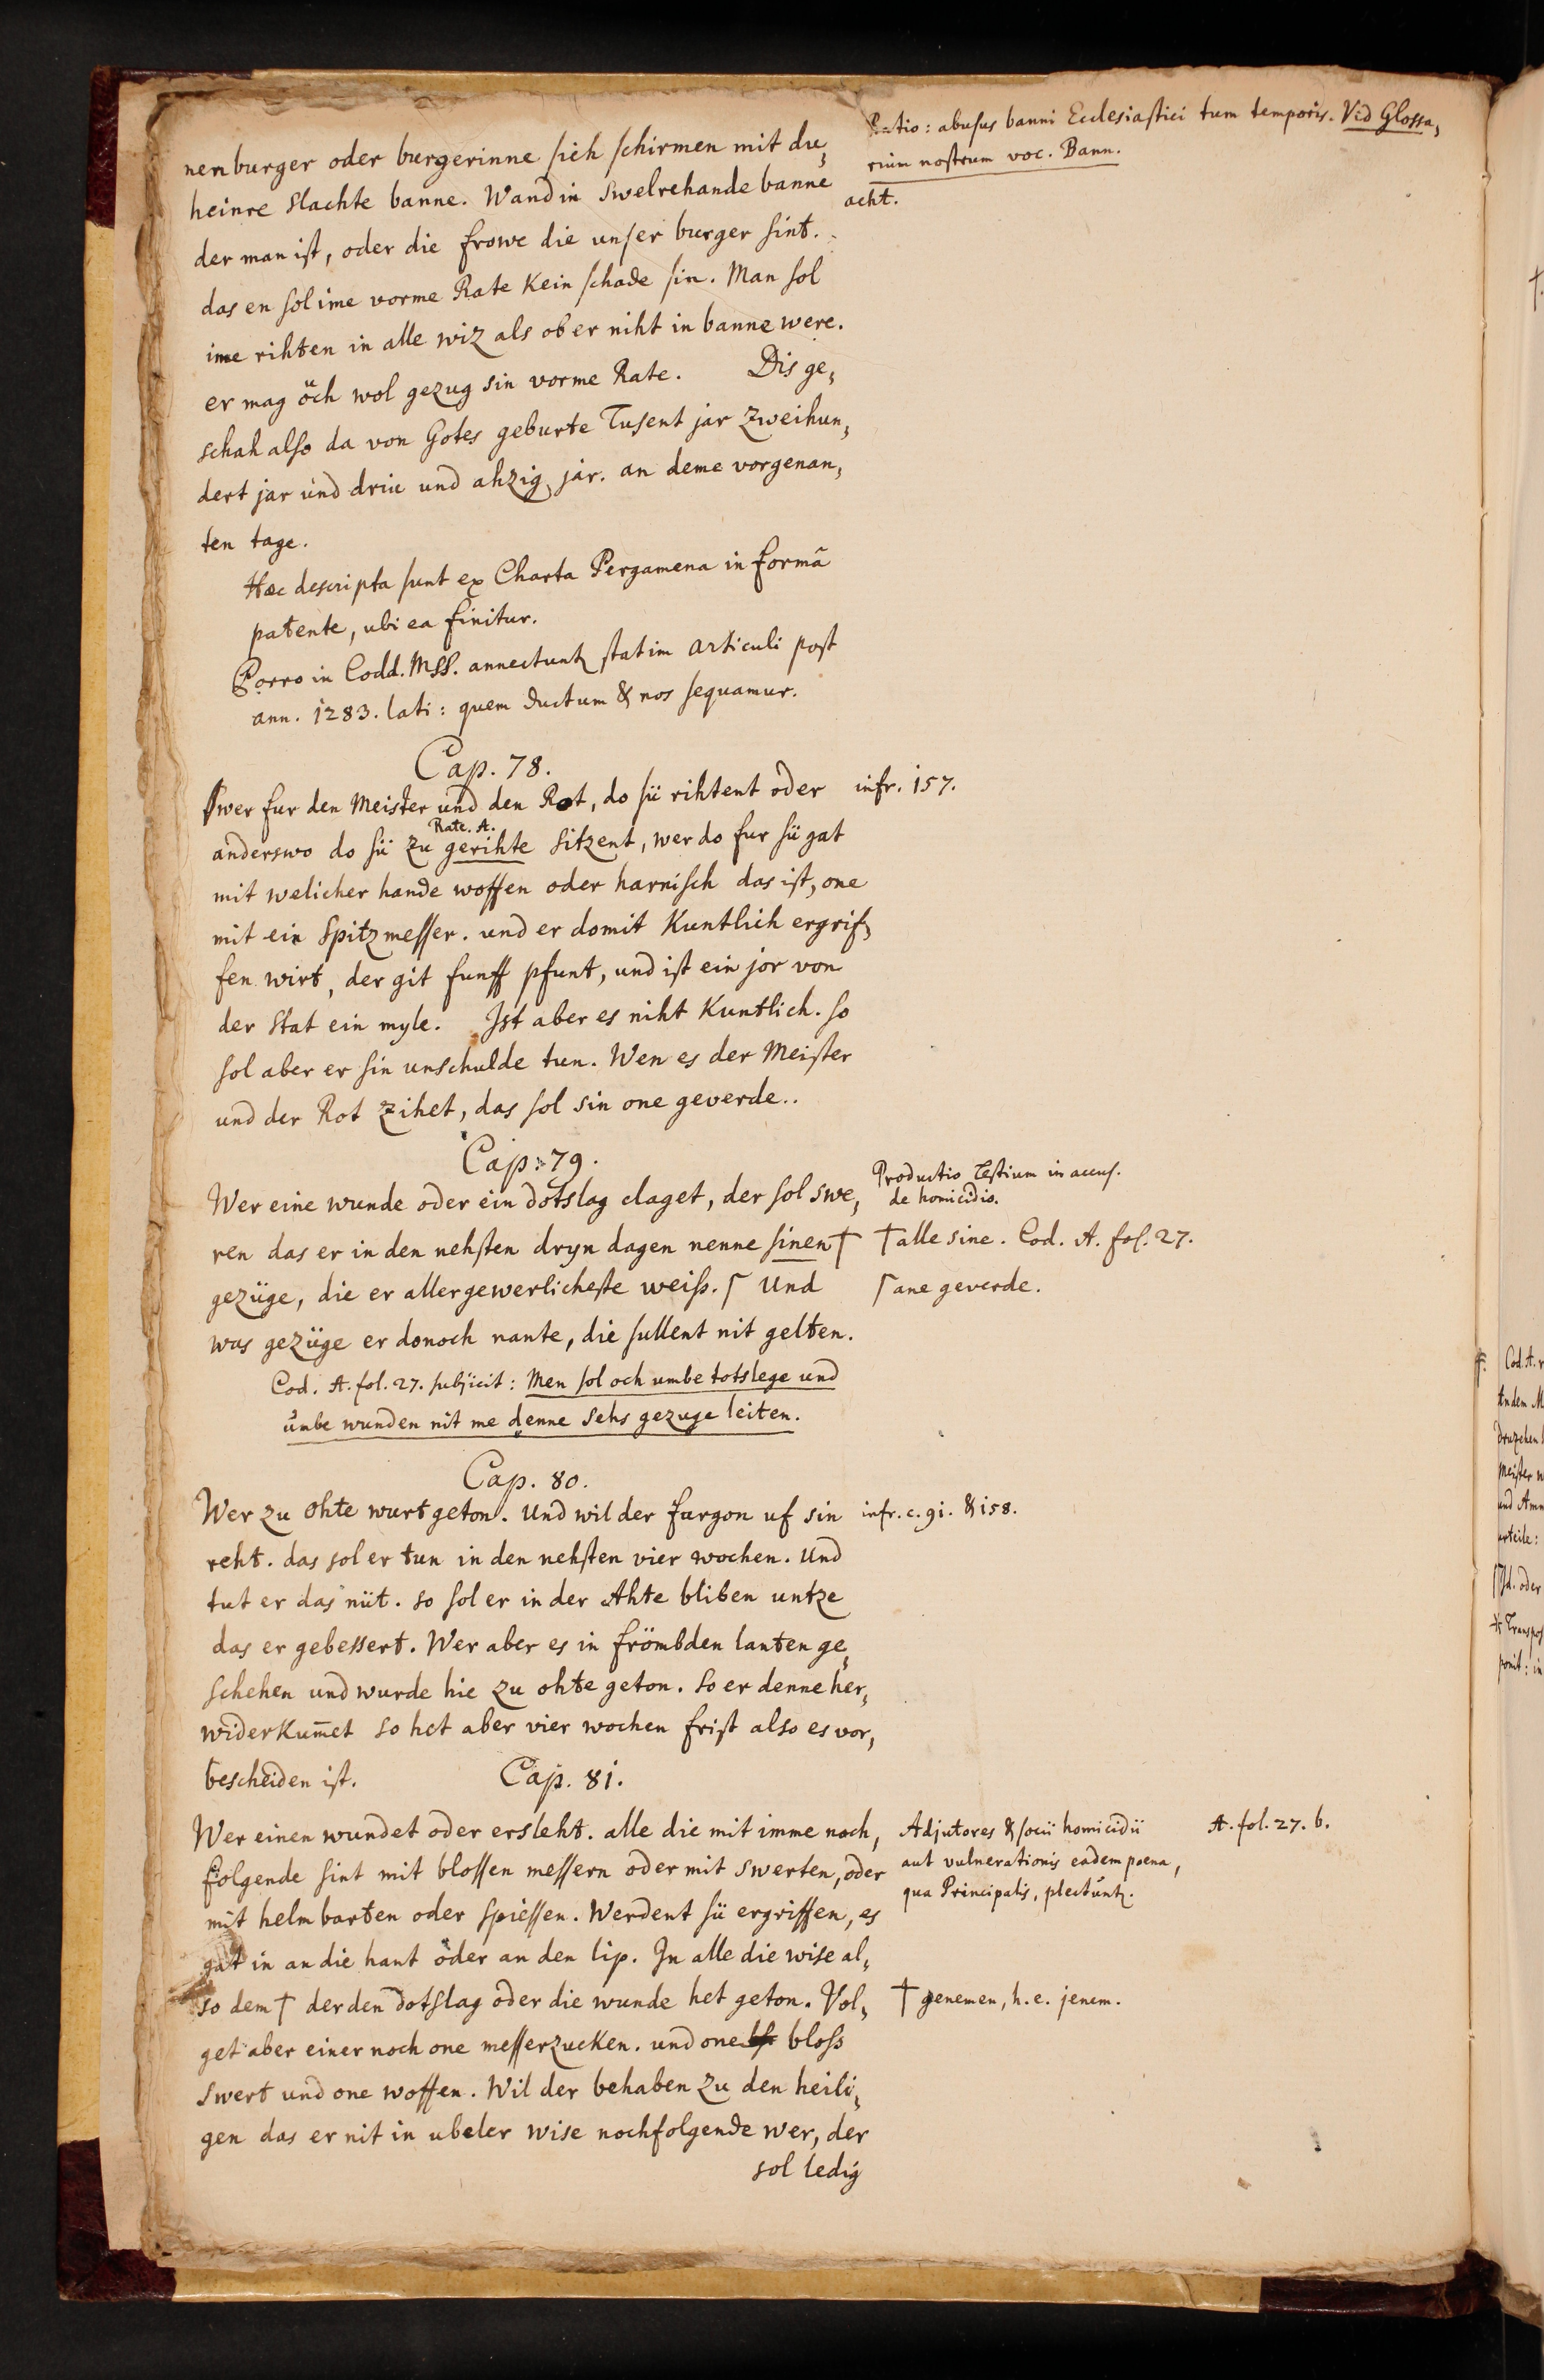 nen burger oder burgerinne sich schirmen mit du,
heinre slachte banne. Wand in swelrehande banne
der man ist, oder die frowe die unser burger sint.
das en sol ime vorme Rate kein schade sin. Man sol
ime rihten in alle wiz als ob er niht in banne were.
er mag öch wol gezug sin vorme Rate. Dis ge,
schah also da von Gotes geburte Tusent jar zweihun,
dert jar und driu und ahzig jar. an deme vorgenan,
ten tage.
Ratio: abusus banni Ecclesiastici tum temporis. Vid Glossa,
rium nostrum voc. Bann.
acht.
Hæc descripta sunt ex Charta Pergamena in formâ
patente, ubi ea finitur.
Porro in Codd. MSS. annectuntz statim articuli post
ann. 1283. lati: quem ductum & nos sequamur.
Cap. 78.
Swer fur den Meister und den Rot, do sü rihtent oder
infr. 157.
Rate. A.
anderswo do sü zu gerihte sitzent, wer do fur sü gat
mit welicher hande woffen oder harnisch das ist, one
mit ein Spitzmesser. und er domit kuntlich ergrif,
fen wirt, der git funff pfunt, und ist ein jor von
der stat ein myle. Ist aber es niht kuntlich. so
sol aber er sin unschulde tun. Wen es der Meister
und der Rot zihet, das sol sin one geverde..
Cap. 79.
Wer eine wunde oder ein dotslag claget, der sol swe,
ren das er in den nehsten dryn dagen nenne sinen †
gezüge, die er allergewerlicheste weiss. ⌈ Und
was gezüge er donoch nante, die sullent nit gelten.
Productio Testium in accus.
de homicidio.
† alle sine. Cod. A. fol. 27.
⌈ ane geverde.
Cod. A. fol. 27. subjicit: Men sol och umbe totslege und
umbe wunden nit me denne sehs gezuge leiten.
Cap. 80.
Wer zu ohte wurt geton. Und wil der furgon uf sin
infr. c. 91. & 158.
reht. das sol er tun in den nehsten vier wochen. Und
tut er das nüt. so sol er in der Ahte bliben untze
das er gebessert. Wer aber es in frömbden lanten ge,
schehen und wurde hie zu ohte geton. so er denne her,
widerkumet so het aber vier wochen frist also es vor,
bescheiden ist.
Cap. 81.
Wer einen wundet oder ersleht. alle die mit imme noch,
folgende sint mit blossen messern oder mit swerten, oder
mit helmbarten oder spiessen. Werdent sü ergriffen, es
gat in an die hant oder an den lip. In alle die wise al,
so dem † der den dotslag oder die wunde het geton. Vol,
get aber einer noch one messerzucken. und one bloss
swert und one woffen. Wil der behaben zu den heili,
gen das er nit in ubeler wise nochfolgende wer, der
sol ledig
Adjutores & socii homicidii
aut vulnerationis eadem poena,
qua Principalis, plectuntz.
A. fol. 27. b.
† genemen, h. e. jenem.